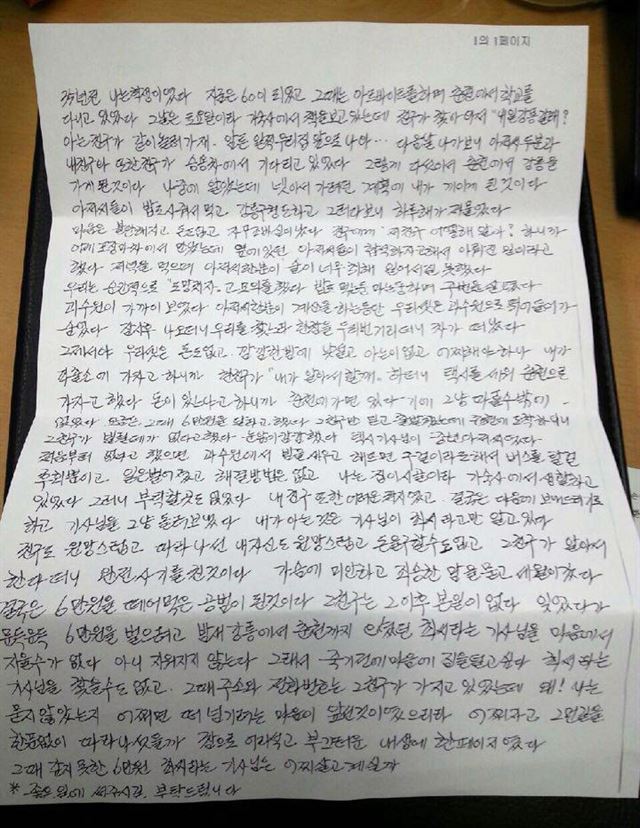 1의 1페이지
35년전 나는 학생이었다 지금은 60이 되었고 그때는 아르바이트를 하며 춘천에서 학교를
다니고 있었다 그날은 토요일이라 기숙사에서 책을 보고 있는데 친구가 찾아와서 "내일 강릉갈래?
아는 친구가 같이 놀러가재. 앞문 앞쪽 우리집 앞으로 나와 … 다음날 나가보니 아저씨 두분과
내친구와 또한친구가 승용차에서 기다리고 있었다 그렇게 다섯이서 춘천에서 강릉을
가게 된것이다 나중에 알았는데 넷이서 가려던 계획에 내가 끼이게 된 것이다
아저씨들이 밥도 사줘서 먹고 강릉구경도 하고 그러다보니 하루해가 저물었다
마음은 불안해지고 돈도 없고 친구에게 어떻게 알아? 하니까
어제 포장마차에서 만났는데 옆에 있던 아저씨들이 합석하자고해서 이뤄진 일이라고
했다 저녁을 먹으며 아저씨한분이 술이 너무 취해 일어서질 못했다
우리는 순간적으로 "도망치자. 고 모의를 했다 밥도 먹는둥 마는둥하며
과수원이 가까이 보였다 아저씨한분이 계산을 하는동안 우리셋은 과수원으로 뛰어들어가
숨었다 잠시후 나오더니 우리를 찾느라 한참을 두리번거리더니 차가 떠났다
그제서야 우리셋은 돈도없고 깜깜한밤에 낯설고 아는이없고 어찌해야하나 내가
파출소에 가자고 하니까 한친구가 "내가 알아서 할께. 하더니 택시를 세워 춘천으로
가자고 했다 돈이 있느냐고 하니까 춘천에 가면 있다기에 그냥 따를수밖에
없었다 요금은 그때 6만원을 달라고 했다 그친구만 믿고 춘천에 도착하니
그친구가 빌릴데가 없다고 했다 눈앞이 캄캄했다 택시기사님이
처음부터 없다고 했으면 과수원에서 밤을 새우고 해뜨면 구걸이라도해서 버스를 탈걸
후회뿐이고 일은 벌어졌고 해결방법은 없고 나는 집이 시골이라 기숙사에서 생활하고
있었다 그러니 부탁할곳도 없었다 내친구 또한 어려운 처지였고. 결국은 다음에 보내드리기로
하고 기사님을 그냥 돌려보냈다 내가 아는것은 기사님이 최씨라고만 알고 있다
친구도 원망스럽고 따라나선 내자신도 원망스럽고 돈을 구할수도 없고 그친구가 알아서
한다더니 완전 사기를 친것이다 가슴에 미안하고 죄송한 맘을 품고 세월이 갔다
결국은 6만원을 떼어먹은 공범이 된것이다 그친구는 그 이후 본일이 없다 잊었다가
문득문득 6만원을 벌으려고 밤새 강릉에서 춘천까지 오셨던 최씨라는 기사님을 마음에서
지울수가 없다 아니 지워지지 않는다 그래서 죽기전에 마음에 짐을 덜고싶다 최씨라는
기사님을 찾을수도 없고. 그때 주소와 전화번호는 그친구가 가지고 있었는데 왜! 나는
묻지 않았는지 어쩌면 떠넘기려는 마음이 앞선것이었으리라 어찌자고 그먼길을
한푼없이 따라나섰을까 참으로 어리석고 부끄러운 내생에 한페이지였다
그때 갚지 못한 6만원 최씨라는 기사님은 어찌살고 계실까
* 좋은일에 써주시길 부탁드립니다